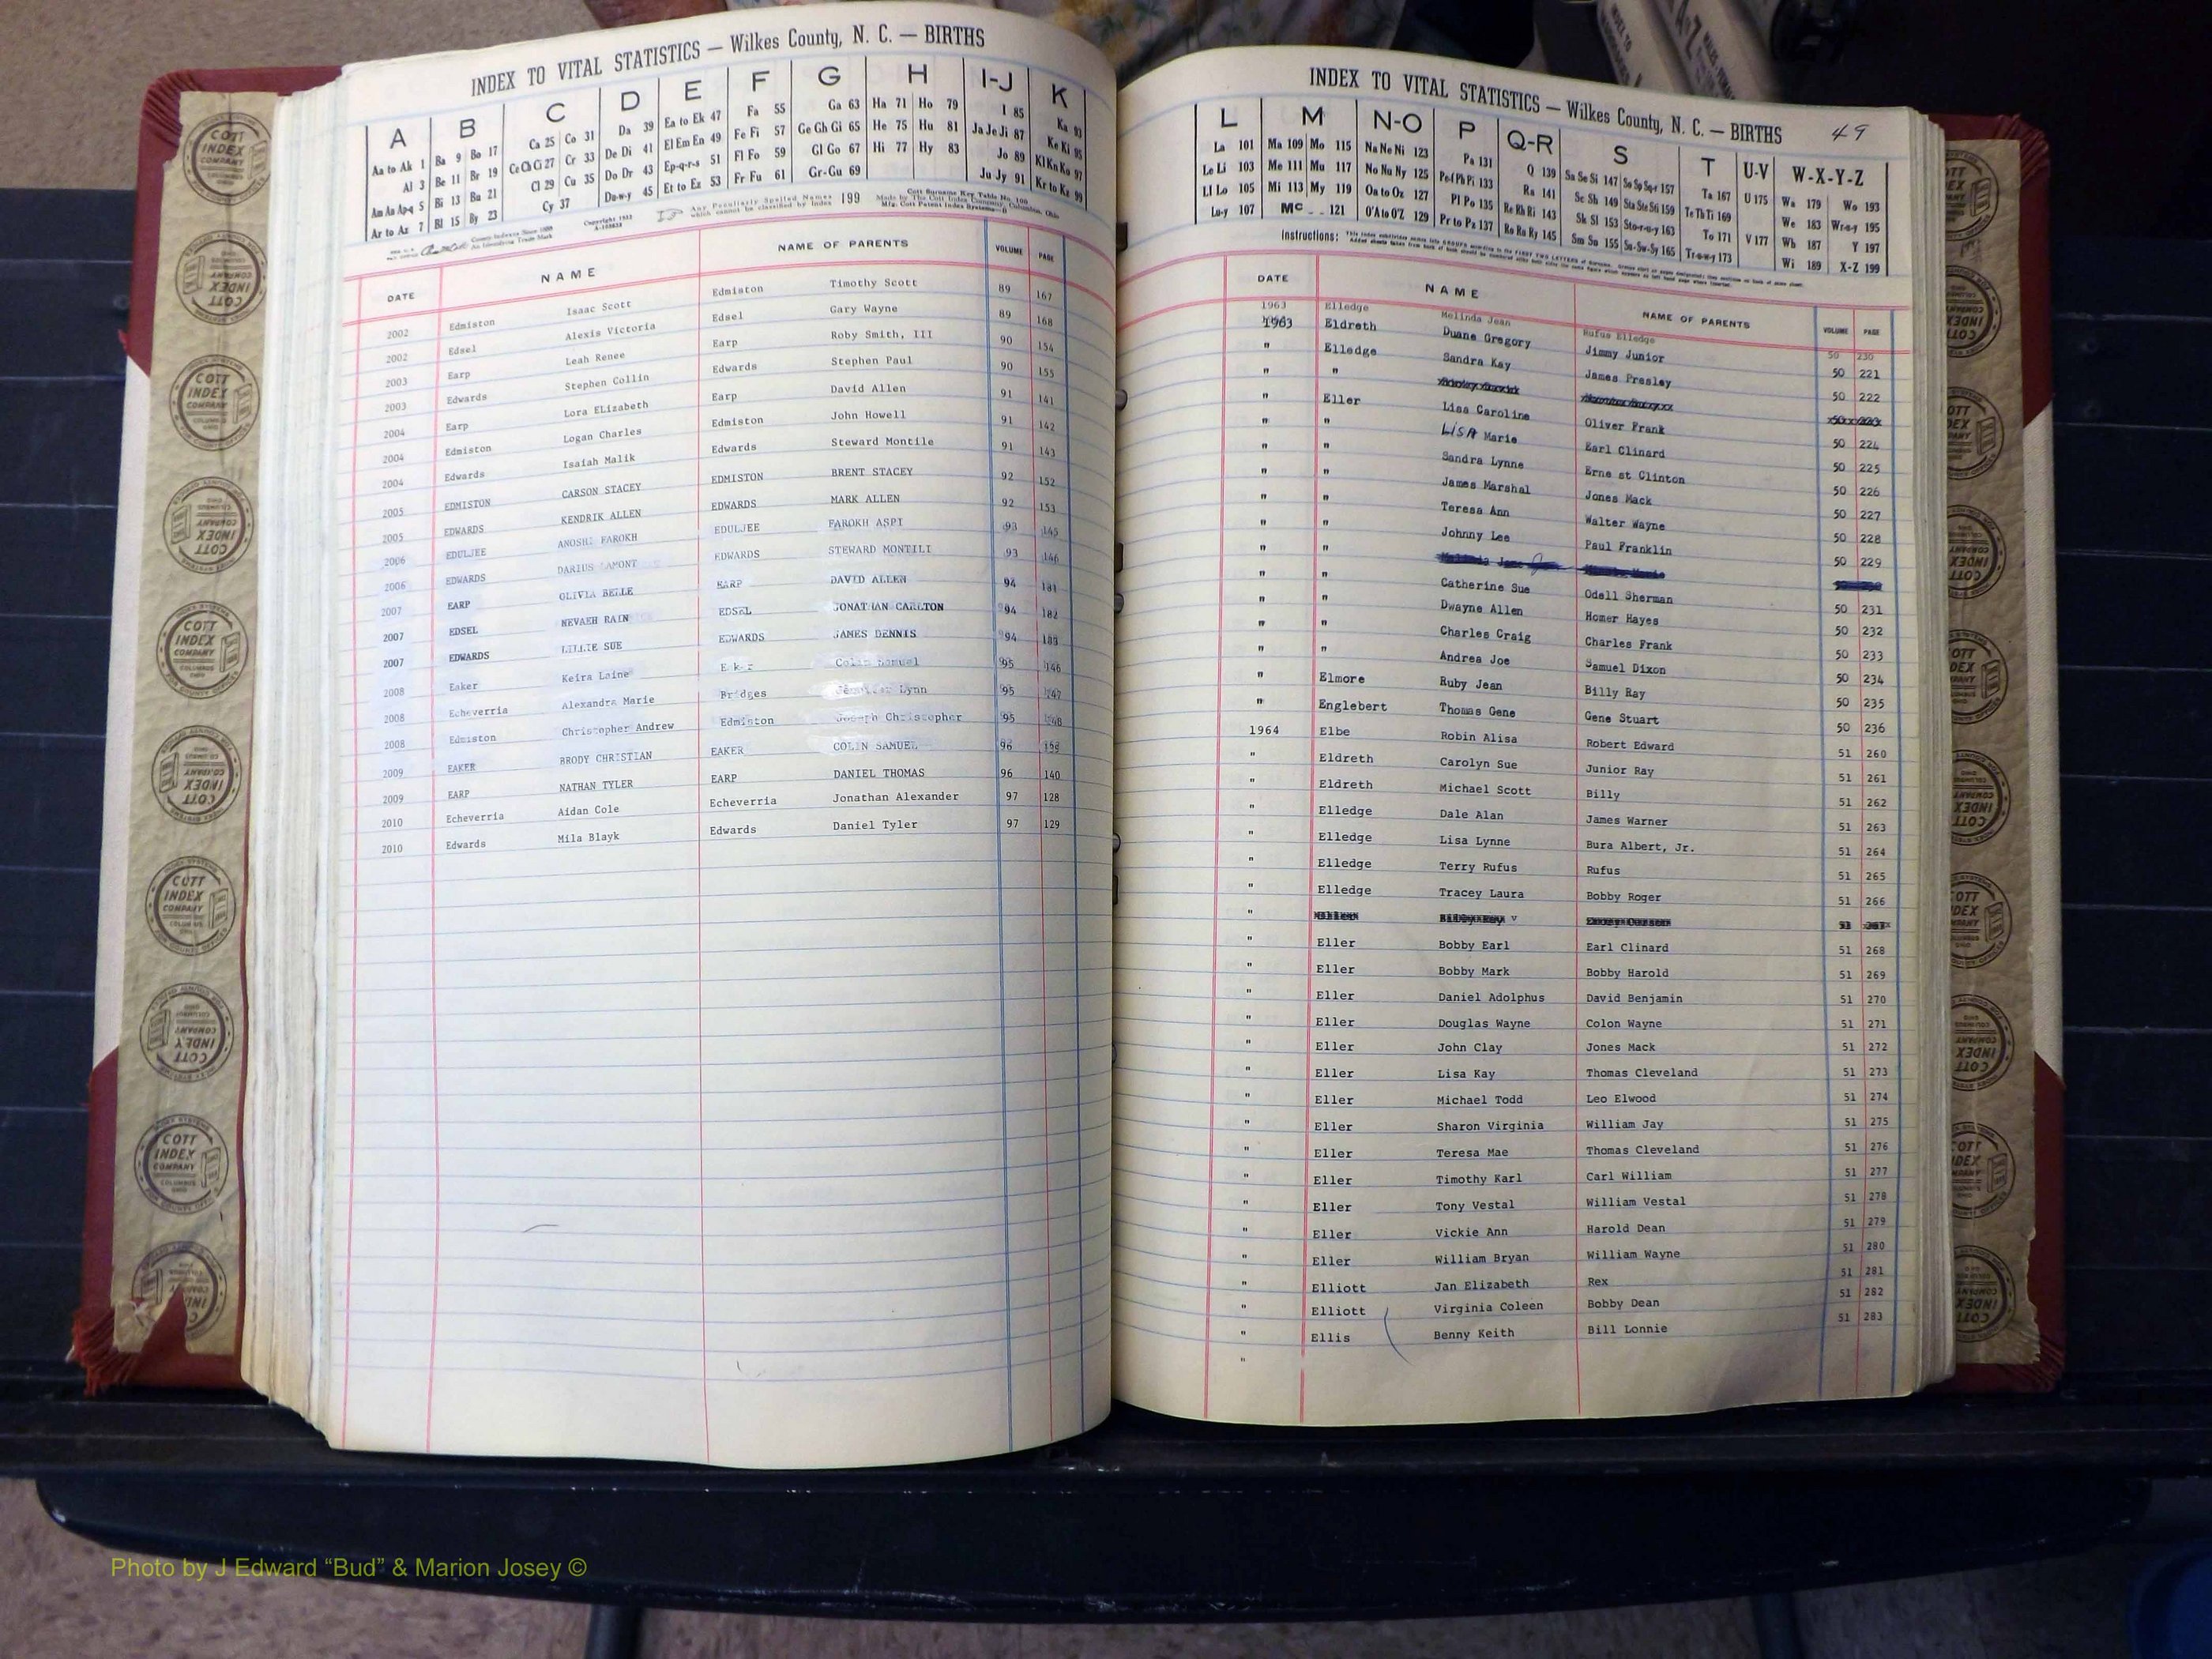 INDEX TO VITAL STATISTICS — Wilkes County, N. C. — BIRTHS
A B C D E F G H I-J K
Aa to Ak 1 Ba 9 Bo 17 Ca 25 Co 31 Da 39 Ea to Ek 47 Fa 55 Ga 63 Ha 71 Ho 79 I 85 Ka 93
Al 3 Be 11 Br 19 Ce Ch Ci 27 Cr 33 De Di 41 El Em En 49 Fe Fi 57 Ge Gh Gi 65 He 75 Hu 81 Ja Je Ji 87 Ke Ki 95
Am An Ap-q 5 Bi 13 Bu 21 Cl 29 Cu 35 Do Dr 43 Ep-q-r-s 51 Fl Fo 59 Gl Go 67 Hi 77 Hy 83 Jo 89 Kl Kn Ko 97
Ar to Az 7 Bl 15 By 23 Cy 37 Du-w-y 45 Et to Ez 53 Fr Fu 61 Gr-Gu 69 Ju Jy 91 Kr to Kz 99
Any Peculiarly Spelled Names which cannot be classified by Index 199
DATE NAME NAME OF PARENTS VOLUME PAGE
2002 Edmiston Isaac Scott Edmiston Timothy Scott 89 167
2002 Edsel Alexis Victoria Edsel Gary Wayne 89 168
2003 Earp Leah Renee Earp Roby Smith, III 90 154
2003 Edwards Stephen Collin Edwards Stephen Paul 90 155
2004 Earp Lora ELizabeth Earp David Allen 91 141
2004 Edmiston Logan Charles Edmiston John Howell 91 142
2004 Edwards Isaiah Malik Edwards Steward Montile 91 143
2005 EDMISTON CARSON STACEY EDMISTON BRENT STACEY 92 152
2005 EDWARDS KENDRIK ALLEN EDWARDS MARK ALLEN 92 153
2006 EDULJEE ANOSH FAROKH EDULJEE FAROKH ASPI 93 145
2006 EDWARDS DARIUS LAMONT EDWARDS STEWARD MONTILI 93 146
2007 EARP OLIVIA BELLE EARP DAVID ALLEN 94 181
2007 EDSEL NEVAEH RAIN EDSEL JONATHAN CARLTON 94 182
2007 EDWARDS LILLIE SUE EDWARDS JAMES DENNIS 94 183
2008 Eaker Keira Laine Eaker Colin Samuel 95 146
2008 Echeverria Alexandra Marie Bridges Jennifer Lynn 95 147
2008 Edmiston Christopher Andrew Edmiston Joseph Christopher 95 148
2009 EAKER BRODY CHRISTIAN EAKER COLIN SAMUEL 96
2009 EARP NATHAN TYLER EARP DANIEL THOMAS 96 140
2010 Echeverria Aidan Cole Echeverria Jonathan Alexander 97 128
2010 Edwards Mila Blayk Edwards Daniel Tyler 97 129
INDEX TO VITAL STATISTICS — Wilkes County, N. C. — BIRTHS 49
L M N-O P Q-R S T U-V W-X-Y-Z
La 101 Ma 109 Mo 115 Na Ne Ni 123 Pa 131 Q 139 Sa Se Si 147 So Sp Sq-r 157 Ta 167 U 175 Wa 179 Wo 193
Le Li 103 Me 111 Mu 117 No Nu Ny 125 Pe-f Ph Pi 133 Ra 141 Sc Sh 149 Sta Ste Sti 159 Te Th Ti 169 We 183 Wr-u-y 195
Ll Lo 105 Mi 113 My 119 Oa to Oz 127 Pl Po 135 Re Rh Ri 143 Sk Sl 153 Sto-r-u-y 163 To 171 V 177 Wh 187 Y 197
Lu-y 107 Mc 121 O'A to O'Z 129 Pr to Pz 137 Ro Ru Ry 145 Sm Sn 155 Su-Sw-Sy 165 Tr-u-w-y 173 Wi 189 X-Z 199
Instructions:
DATE NAME NAME OF PARENTS VOLUME PAGE
1963 Elledge Melinda Jean Rufus Elledge 50 230
1963 Eldreth Duane Gregory Jimmy Junior 50 221
" Elledge Sandra Kay James Presley 50 222
" "
" Eller Lisa Caroline Oliver Frank 50 224
" " LISA Marie Earl Clinard 50 225
" " Sandra Lynne Erne st Clinton 50 226
" " James Marshal Jones Mack 50 227
" " Teresa Ann Walter Wayne 50 228
" " Johnny Lee Paul Franklin 50 229
" "
" " Catherine Sue Odell Sherman 50 231
" " Dwayne Allen Homer Hayes 50 232
" " Charles Craig Charles Frank 50 233
" " Andrea Joe Samuel Dixon 50 234
" Elmore Ruby Jean Billy Ray 50 235
" Englebert Thomas Gene Gene Stuart 50 236
1964 Elbe Robin Alisa Robert Edward 51 260
" Eldreth Carolyn Sue Junior Ray 51 261
" Eldreth Michael Scott Billy 51 262
" Elledge Dale Alan James Warner 51 263
" Elledge Lisa Lynne Bura Albert, Jr. 51 264
" Elledge Terry Rufus Rufus 51 265
" Elledge Tracey Laura Bobby Roger 51 266
"
" Eller Bobby Earl Earl Clinard 51 268
" Eller Bobby Mark Bobby Harold 51 269
" Eller Daniel Adolphus David Benjamin 51 270
" Eller Douglas Wayne Colon Wayne 51 271
" Eller John Clay Jones Mack 51 272
" Eller Lisa Kay Thomas Cleveland 51 273
" Eller Michael Todd Leo Elwood 51 274
" Eller Sharon Virginia William Jay 51 275
" Eller Teresa Mae Thomas Cleveland 51 276
" Eller Timothy Karl Carl William 51 277
" Eller Tony Vestal William Vestal 51 278
" Eller Vickie Ann Harold Dean 51 279
" Eller William Bryan William Wayne 51 280
" Elliott Jan Elizabeth Rex 51 281
" Elliott Virginia Coleen Bobby Dean 51 282
" Ellis Benny Keith Bill Lonnie 51 283
"
COTT INDEX COMPANY COLUMBUS OHIO
Photo by J Edward “Bud” & Marion Josey ©